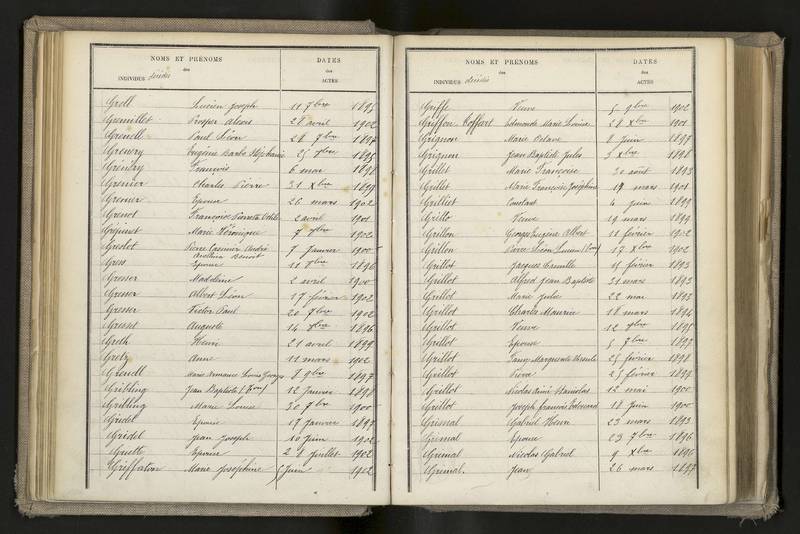 NOMS ET PRÉNOMS
des
INDIVIDUS décédés
DATES
des
ACTES
Grell Lucien Joseph 11 7bre 1895
Gremillet Prosper Alexis 28 avril 1902
Grenell Paul Léon 28 7bre 1897
Eugène Barbe Stéphanie 25 1895
François 6 mai 1898
Grenier Charles Pierre 31 Xbre 1899
Grenier Epouse 26 mars 1902
Grenot François 2 avril 1901
Marie Véronique 7 1902
Greslot Pierre Casimir André 7 Janvier 1900
Gress Epouse 11 1896
Gresser Madeleine 2 avril 1900
Gresser Albert Léon 17 février 1902
Gresser Victor Paul 20 7bre 1902
Gresset Auguste 14 1896
Greth Henri 21 avril 1899
Gretz Anne 11 mars 1902
8 9bre 1897
Gribling Jean Baptiste 12 Janvier 1898
Gribling Marie Louise 30 7bre 1900
Gridel Epouse 17 Janvier 1897
Gridel Jean Joseph 10 Juin 1902
Epouse 28 Juillet 1902
Griffaton Marie Joséphine 1 Juin 1902
NOMS ET PRÉNOMS
des
INDIVIDUS décédés
DATES
des
ACTES
Griffe Veuve 5 9bre 1902
Griffon Edmonde Marie Louise 28 Xbre 1901
Grignon Marie Octave 8 Juin 1897
Grignon Jean Baptiste Jules 3 Xbre 1898
Grillet Marie Françoise 30 août 1893
Grillet Marie Françoise Joséphine 19 mars 1901
Grilliet Constant 4 Juin 1899
Grillo Veuve 19 mars 1899
Grillon Georges Eugène Albert 11 février 1902
Grillon Pierre Léon Lucien 17 Xbre 1902
Grillot Jacques Camille 15 février 1893
Grillot Alfred Jean Baptiste 31 mars 1893
Grillot Marie Julie 22 mai 1893
Grillot Charles Maurice 18 mars 1894
Grillot Veuve 12 1895
Grillot Epouse 5 7bre 1897
Grillot Fanny Marguerite Ursule 25 février 1898
Grillot 25 février 1899
Grillot Nicolas Aimé Stanislas 12 mai 1900
Grillot Joseph François Edouard 18 Juin 1900
Grimal Gabriel Henri 23 mars 1893
Grimal Epouse 23 7bre 1896
Grimal Nicolas Gabriel 9 Xbre 1896
Grimal. Jean 26 mars 1897